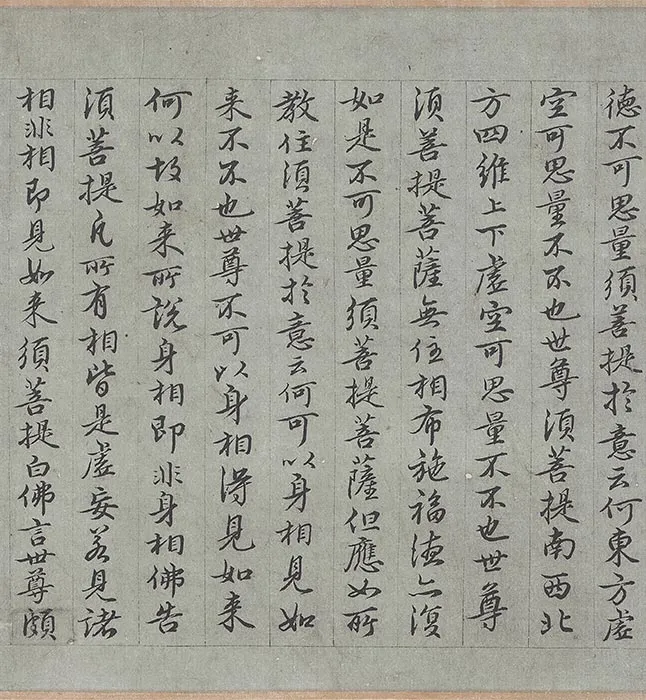 德不可思量須菩提於意云何東方虛
空可思量不不也世尊須菩提南西北
方四維上下虛空可思量不不也世尊
須菩提菩薩無住相布施福德亦復
如是不可思量須菩提菩薩但應如所
教住須菩提於意云何可以身相見如
来不不也世尊不可以身相得見如来
何以故如来所說身相即非身相佛告
須菩提凡所有相皆是虛妄若見諸
相非相即見如来須菩提白佛言世尊頗